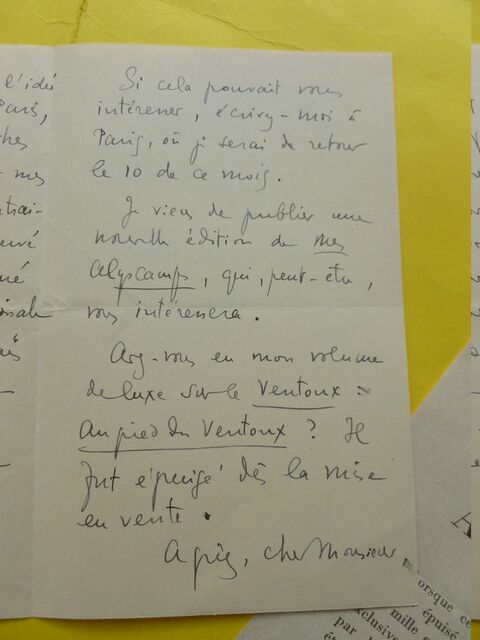 l'idé
Paris,
ches
mes
Si cela pouvait vous
intéresser, écrivez-moi à
Paris, où je serai de retour
le 10 de ce mois.
Je viens de publier une
nouvelle édition de mes
Alyscamps, qui, peut-être,
vous intéressera.
Avez-vous eu mon volume
de luxe sur le Ventoux :
Au pied du Ventoux ? Il
fut épuisé dès la mise
en vente.
Agréez, cher Monsieur,
orsque ce
épuisé
mille
exclusive
par